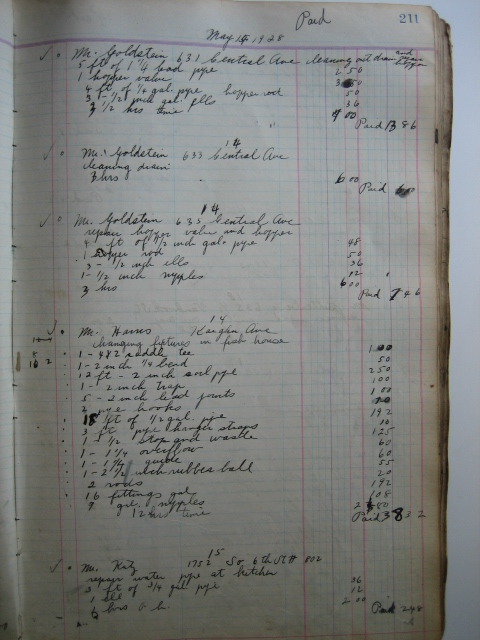 Paid 211
May 14 1928
Mr. Goldstein 631 Central Ave cleaning out drain and
5 ft of 1 1/4 lead pipe 2 50
1 hopper valve 3 50
4 ft of 1/4 gal. pipe hopper rod 50
3 - 1/2 inch gal. ells 36
3 1/2 hrs time 7 00
Paid 13 86
14
Mr. Goldstein 633 Central Ave
cleaning drain
3 hrs 6 00
Paid 6 00
14
Mr. Goldstein 633 Central Ave
repair hopper valve and hopper
4 ft of 1/2 inch gal. pipe 48
1 hopper rod 50
3 - 1/2 inch ells 36
1 - 1/2 inch nipples 12
3 hrs 6 00
Paid 7 46
14
Mr. Harris Kaigan Ave
changing fixtures in fish house
1 - 4x2 saddle tee 1 00
1 - 2 inch 1/4 bend 50
12 ft - 2 inch soil pipe 2 50
1 - 2 inch trap 1 00
5 - 2 inch lead joints 1 00
2 pipe hooks
16 ft of 1/2 gal. pipe 1 92
3 ft pipe hanger straps
1 - 1/2 stop and waste 1 25
1 - 1 1/4 overflow 60
1 - 1 1/4 guide 60
1 - 2 1/2 inch rubber ball 55
2 rods 20
16 fittings gal. 1 92
9 gal. nipples 1 08
12 hrs time
Paid 38 32
15
Mr. Katz 1752 So. 6th St # 802
repair water pipe at kitchen
3 ft of 3/4 gal. pipe 36
1 ell 12
hrs 2 00
Paid 2 48